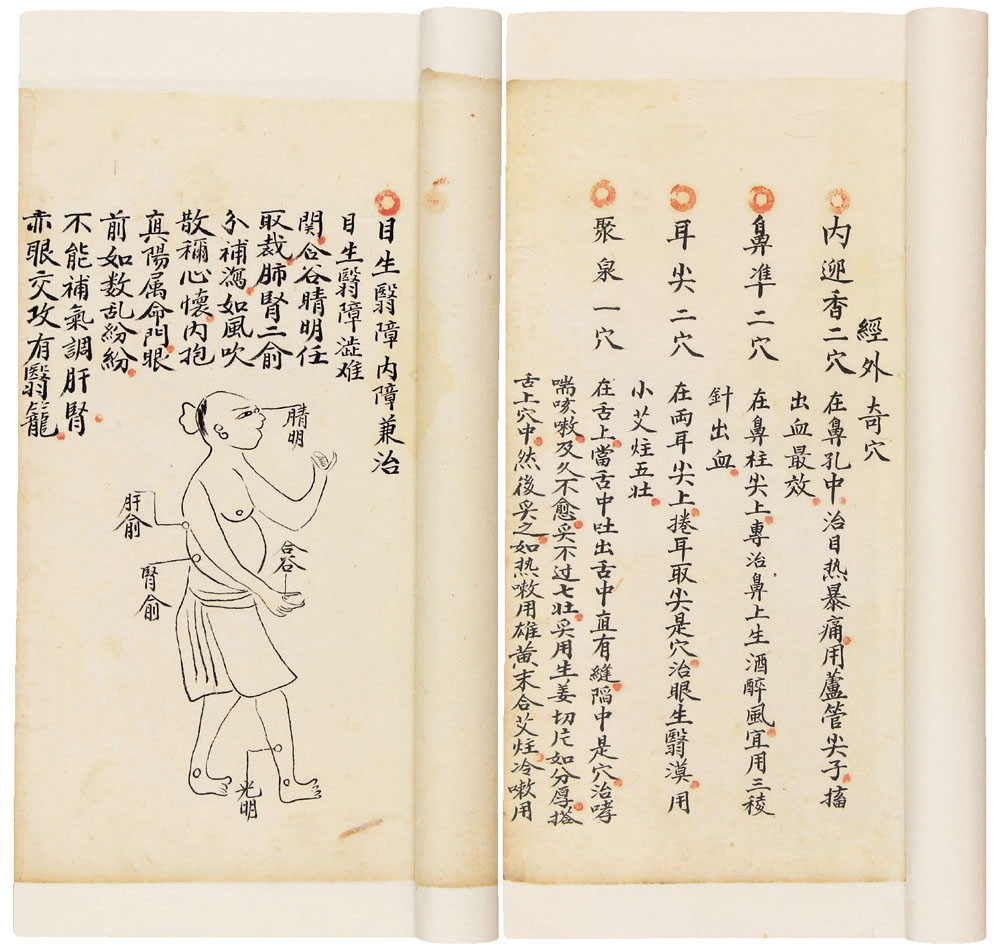 經外奇穴
内迎香二穴 在鼻孔中治目热暴痛用蘆管尖子搐
出血最效
鼻準二穴 在鼻柱尖上專治鼻上生酒醉風宜用三稜
針出血
耳尖二穴 在两耳尖上捲耳取尖是穴治眼生翳漠用
小艾炷五壮
聚泉一穴 在舌上當舌中吐出舌中直有縫陷中是穴治哮
喘咳嗽及久不愈灸不过七壮灸用生姜切片如分厚搭
舌上穴中然後灸之如热嗽用雄黄末合艾炷冷嗽用
目生翳障内障兼治
目生翳障澁难
関合谷睛明任
取裁肺腎二俞
分補瀉如風吹
散禰心懷内抱
真陽属命門眼
前如数乱紛紛
不能補氣調肝腎
赤眼交攻有翳籠
睛明
肝俞
合谷
腎俞
光明